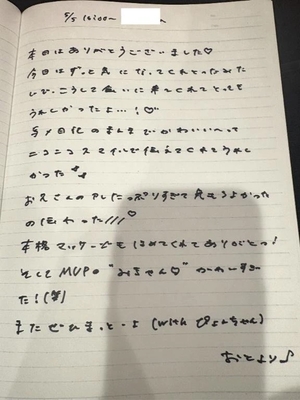 5/5 16:00~
本日はありがとうございました♡
今日はずっと気になってくれとったみた
いで、こうして会いに来てくれてとっても
うれしかったよ…!♡
ダメ日化のまんまでかわいい〜って
ニコニコスマイルで伝えてくれてうれし
かった
お兄さんのアしたっぷりすぎて気もちよかった
の伝わった///♡
本格マッサージもほめてくれてありがとっ!
そしてMVPの"みきさん♡"かわいすぎ
た!(笑)
またぜひまっとーよ(withぴょんちゃん)
おとより♪